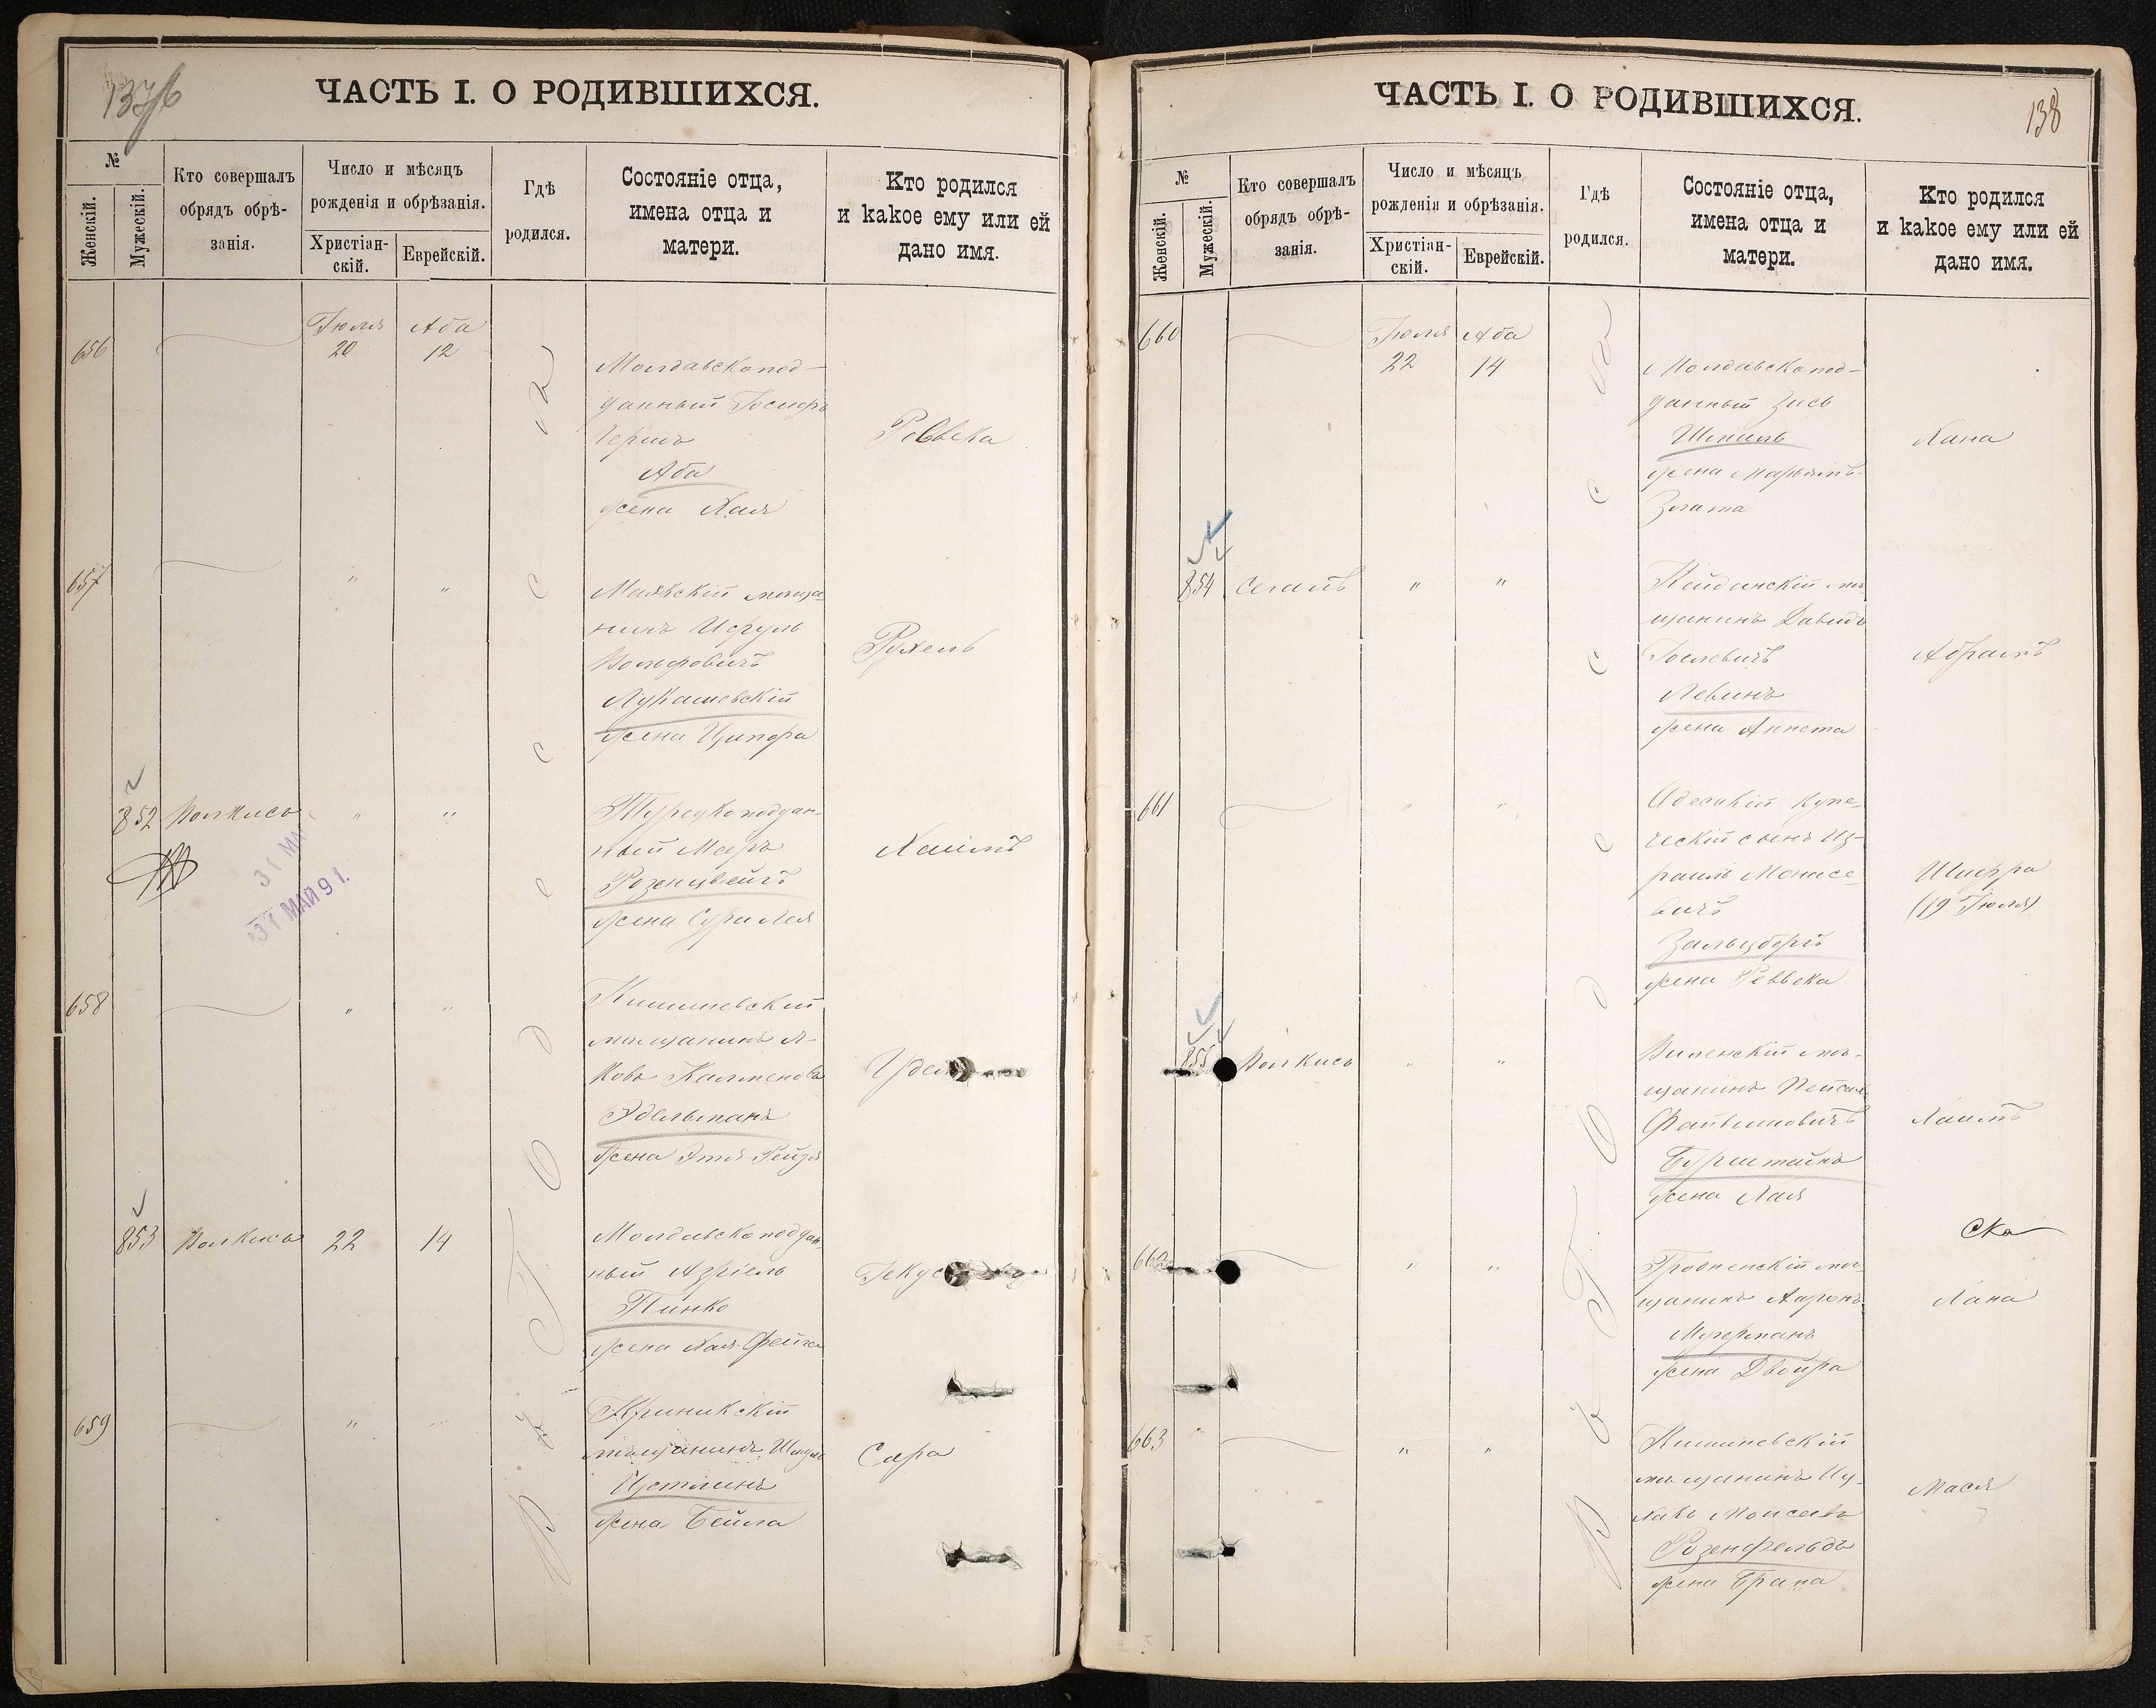 137/б
ЧАСТЬ I. О РОДИВШИХСЯ.
№
Женскій.
Мужескій.
Кто совершалъ
обрядъ обрѣ-
занія.
Число и мѣсяцъ
рожденія и обрѣзанія.
Христіан-
скій.
Еврейскій.
Гдѣ
родился.
Состояніе отца,
имена отца и
матери.
Кто родился
и какое ему или ей
дано имя.
Въ г. Одессѣ
656
Іюля
20
Аба
12
Молдавскопод-
данный Іосифъ
Герш
Аба
жена Хая
Реввека
657
"
"
Маякскій мѣща-
нинъ Исруль
Вольфовичъ
Лукашевскій
жена Ципора
Рухель
852
Волкисъ
"
"
31 МАЙ 91.
Турецкоподдан-
ный Мееръ
Розенцвейгъ
жена Сура Лея
Хаимъ
658
"
"
Кишиневскій
мѣщанинъ Я-
ковъ Калменовъ
Эдельманъ
жена Этя-Рейзя
853
Волкисъ
22
14
Молдавскоподдан-
ный Азріель
Пинко
жена Хая-Фейга
659
"
"
Криникскій
мѣщанинъ
Цетлинъ
жена Бейла
Сара
138
ЧАСТЬ I. О РОДИВШИХСЯ.
№
Женскій.
Мужескій.
Кто совершалъ
обрядъ обрѣ-
занія.
Число и мѣсяцъ
рожденія и обрѣзанія.
Христіан-
скій.
Еврейскій.
Гдѣ
родился.
Состояніе отца,
имена отца и
матери.
Кто родился
и какое ему или ей
дано имя.
Въ г. Одессѣ
660
Іюля
22
Аба
14
Молдавскопод-
данный Зись
жена Марьямъ-
Злата
Хана
854
Сегалъ
"
"
Кейданскій мѣ
щанинъ Давидъ
Іоселевичъ
Левинъ
жена Аннета
Абрамъ
661
"
"
Одесскій купе-
ческій сынъ Из-
раиль Монасе-
вичъ
Зальцбергъ
жена Реввека
Шифра
(19 Іюля)
855
Волкисъ
"
"
Виленскій мѣ-
щанинъ Пейсах
Файвишовичъ
Бурштейнъ
жена Хая
Хаимъ
Ска
662
"
"
Гродненскій мѣ-
щанинъ Ааронъ
Мугерманъ
жена Двойра
Хана
663
"
"
Кишиневскій
мѣщанинъ Иц-
хакъ Моисеевъ
Розенфельдъ
жена Брана
Мася